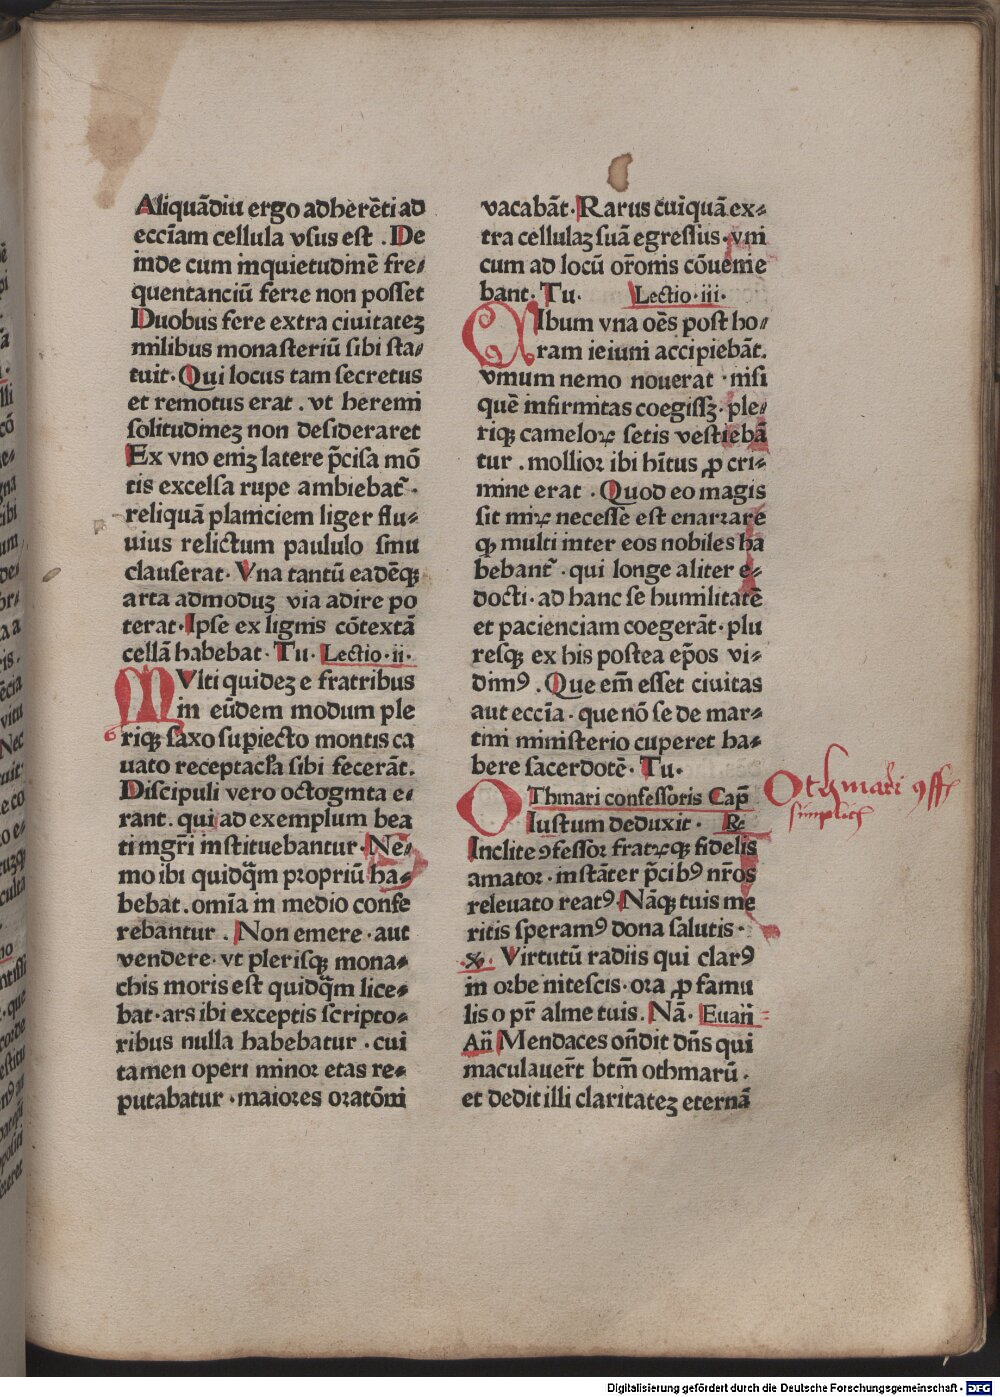 Aliquãdiu ergo adherẽti ad
ecciam cellula vsus est . De
inde cum inquietudinẽ fre⸗
quentanciũ ferre non posset
Duobus fere extra ciuitateȝ
milibus monasteriũ sibi sta⸗
tuit· Qui locus tam secretus
et remotus erat . vt heremi
solitudineȝ non desideraret
Ex vno emȝ latere p̃cisa mõ
tis excelsa rupe ambiebat᷑ ·
reliquã planiciem liger flu⸗
uius relictum paululo sinu
clauserat· Vna tantũ eadẽqꝫ
arta admoduȝ via adire po
terat· Ipse ex lignis cõtextã
cellã habebat· Tu· Lectio·ii·
MVlti quideȝ e fratribus
in eũdem modum ple
riqꝫ saxo supiecto montis ca
uato receptacła sibi fecerãt.
Discipuli vero octoginta e⸗
rant. qui ad exemplum bea
ti mgr̃i instituebantur· Ne⸗
mo ibi quidq̃m propriũ ha⸗
bebat. omĩa in medio confe
rebantur . Non emere · aut
vendere· vt plerisqꝫ mona⸗
chis moris est quidq̃m lice⸗
bat· ars ibi exceptis scripto⸗
ribus nulla habebatur . cui
tamen operi minor etas re⸗
putabatur · maiores oratõni
vacabãt· Rarus cuiquã ex⸗
tra cellulaȝ suã egressus· vni
cum ad locũ or̃onis cõuenie
bant· Tu· Lectio·iii·
CIbum vna oẽs post ho⸗
ram ieiunii accipiebãt.
vinum nemo nouerat · nisi
quẽ infirmitas coegissȝ· ple⸗
riqꝫ cameloꝝ setis vestiebã
tur . mollior ibi hĩtus ꝓ cri⸗
mine erat . Quod eo magis
sit miꝝ necesse est enarrare
qꝫ multi inter eos nobiles ha
bebant᷑ · qui longe aliter e⸗
docti· ad hanc se humilitatẽ
et pacienciam coegerãt· plu
resqꝫ ex his postea ep̃os vi⸗
dimꝰ . Que em̃ esset ciuitas
aut eccĩa · que nõ se de mar⸗
tini ministerio cuperet ha⸗
bere sacerdotẽ· Tu·
OThmari confessoris Cap̃
Iustum deduxit· ℟
Inclite ꝯfessor fratꝝqꝫ fidelis
amator· instãter p̃cibꝰ nr̃os
releuato reatꝰ· Nãqꝫ tuis me
ritis speramꝰ dona salutis ·
℣· Virtutũ radiis qui clarꝰ
in orbe nitescis· ora ꝓ famu
lis o pr̃ alme tuis. Nã· Euañ
Añ Mendaces oñdit dñs qui
maculauer̃t btm̃ othmarũ ·
et dedit illi claritateȝ eternã
Othmari ꝯff
simplicit
Digitalisierung gefördert durch die Deutsche Forschungsgemeinschaft · DFG